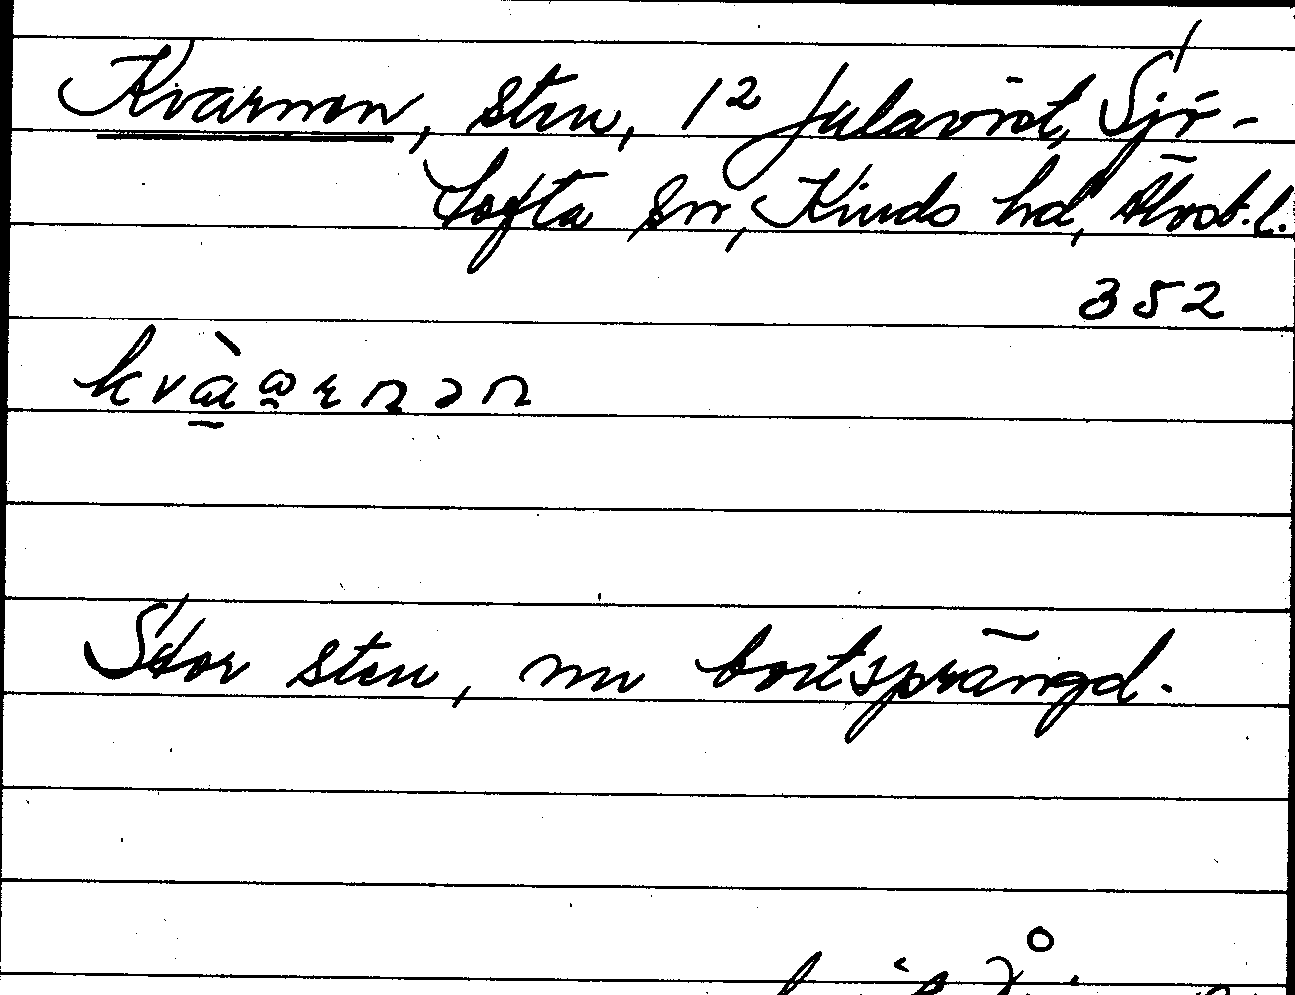 Kvarnen, sten, 1² Julavist, Sjö-
tofta sn, Kinds hd, Älvsb. l.
352
Stor sten, nu bortsprängd.